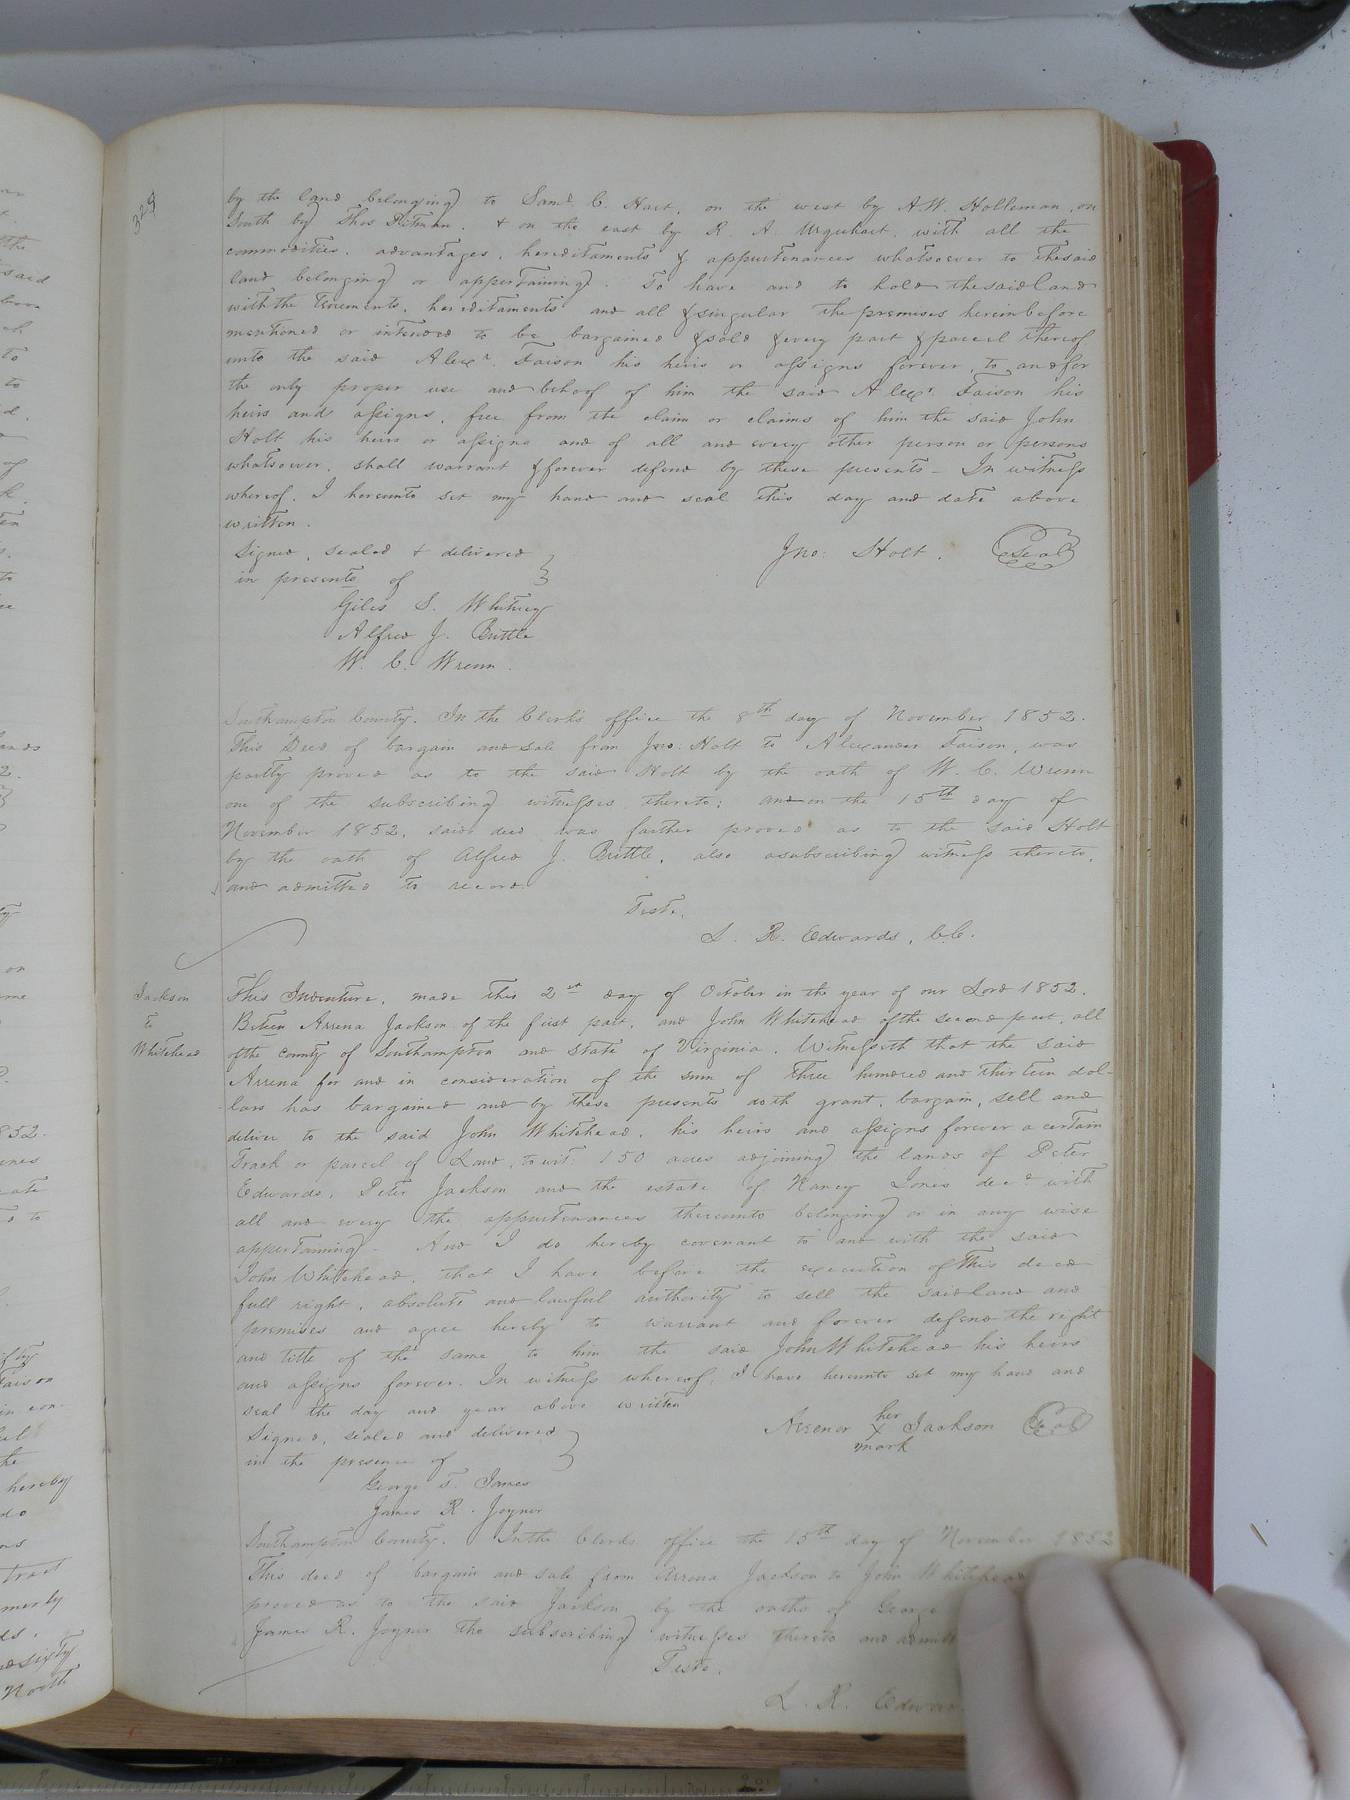 329
by the land belonging to Saml. C. Hart, on the west by A.W. Holleman, on
South by Thos Pitman. & on the east by R. A. Urquhart, with all the
commodities, advantages, hereditaments & appurtenances whatsoever to the said
land belonging or appertaining. To have and to hold the said land
with the Tenements, hereditaments and all & singular the premises hereinbefore
mentioned or intended to be bargained & sold & every part & parcel thereof
unto the said Alexr. Faison his heirs or assigns forever, to and for
the only proper use and behoof of him the said Alexr. Faison his
heirs and assigns, free from the claim or claims of him the said John
Holt his heirs or assigns and of all and every other person or persons
whatsoever, shall warrant & forever defend by these presents - In witness
whereof, I hereunto set my hand and seal this day and date above
written.
Signed, sealed & delivered
in presents of
Jno: Holt. Seal
Giles S. Whitney
Alfred J. Brittle
W. C. Wrenn.
Southampton County. In the Clerk's office the 8th day of November 1852.
This Deed of bargain and sale from Jno: Holt to Alexander Faison, was
partly proved as to the said Holt by the oath of W. C. Wrenn
one of the subscribing witnesses thereto; and on the 15th day of
November 1852, said deed was farther proved as to the said Holt
by the oath of Alfred J. Brittle, also a subscribing witness thereto,
and admitted to record.
Teste,
L. R. Edwards, C.C.
Jackson
to
Whitehead
This Indenture, made this 2st day of October in the year of our Lord 1852.
Beteen Arrena Jackson of the first part, and John Whitehead of the second part, all
of the county of Southampton and State of Virginia. Witnesseth that the said
Arrena for and in consideration of the sum of three hundred and thirteen dol-
lars has bargained and by these presents doth grant, bargain, sell and
deliver to the said John Whitehead, his heirs and assigns forever a certain
Track or parcel of Land, to wit: 150 acres adjoining the lands of Peter
Edwards, Peter Jackson and the estate of Nancy Jones decd. with
all and every the appurtenances thereunto belonging or in any wise
appertaining - And I do hereby covenant to and with the said
John Whitehead, that I have before the execution of this deed
full right, absolute and lawful authority to sell the said land and
premises and agree hereby to warrant and forever defend the right
and title of the same to him the said John Whitehead his heirs
and assigns forever. In witness whereof, I have hereunto set my hand and
seal the day and year above written
Signed, sealed and delivered
in the presence of
Arrenor her X mark Jackson Seal
George T. James
James R. Joyner
Southampton County. In the Clerks office the 15th day of November 1852
This deed of bargain and sale from Arrena Jackson to John Whitehead
proved as to the said Jackson by the oaths of George
James R. Joyner the subscribing witnesses thereto and admitt
Teste,
L. R. Edwar